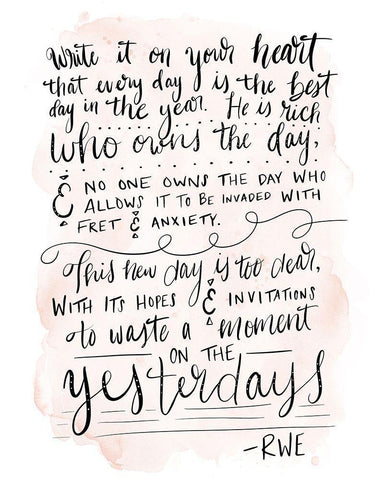 Write it on your heart
that every day is the best
day in the year. He is rich
who owns the day,
& NO ONE OWNS THE DAY WHO
ALLOWS IT TO BE INVADED WITH
FRET & ANXIETY.
This new day is too dear,
WITH ITS HOPES & INVITATIONS
to waste a moment
ON THE
yesterdays
-RWE